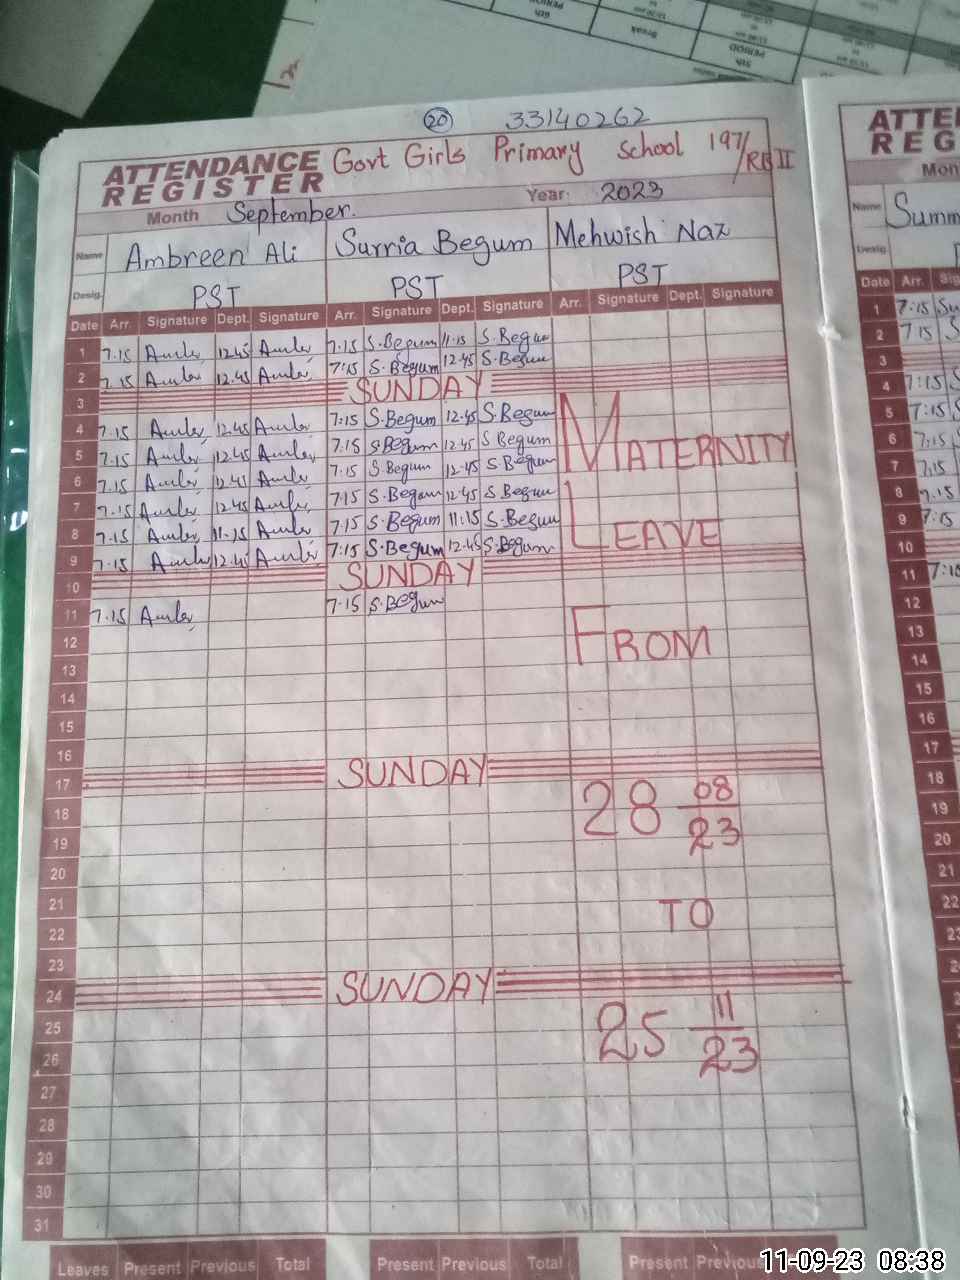 20 33140262
ATTENDANCE REGISTER Govt Girls Primary School 197/RB II
Month September. Year: 2023
Name Ambreen Ali Surria Begum Mehwish Naz
Desig. PST PST PST
Date Arr. Signature Dept. Signature Arr. Signature Dept. Signature Arr. Signature Dept. Signature
1 7.15 12.45 7:15 S.Begum 11.15 S.Begum
2 7.15 12.45 7:15 S.Begum 12.45 S.Begum
3 SUNDAY
4 7.15 12.45 7:15 S.Begum 12.45 S.Begum
5 7.15 12.45 7.15 S Begum 12.45 S Begum
6 7.15 12.45 7.15 S Begum 12.45 S.Begum
7 7.15 12.45 7.15 S.Begum 12.45 S Begum
8 7.15 11.15 7.15 S.Begum 11:15 S.Begum
9 7.15 12.45 7:15 S.Begum 12.45 S.Begum
10 SUNDAY
11 7.15 7.15 S.Begum
12
13
14
15
16
17 SUNDAY
18
19
20
21
22
23
24 SUNDAY
25
26
27
28
29
30
31
MATERNITY
LEAVE
FROM
28 08/23
TO
25 11/23
Leaves Present Previous Total Present Previous Total Present Previous
ATTE
REG
Mon
Name Summ
Desig.
Date Arr. Sig
1 7:15 Su
2 7 15 S
3
4 7:15 S
5 7:15 S
6 7:15
7 7.15
8 7.15
9 7:15
10
11 7:15
12
13
14
15
16
17
18
19
20
21
22
23
2
25
26
27
28
5th PERIOD
Break
6th PERIOD
11-09-23 08:38